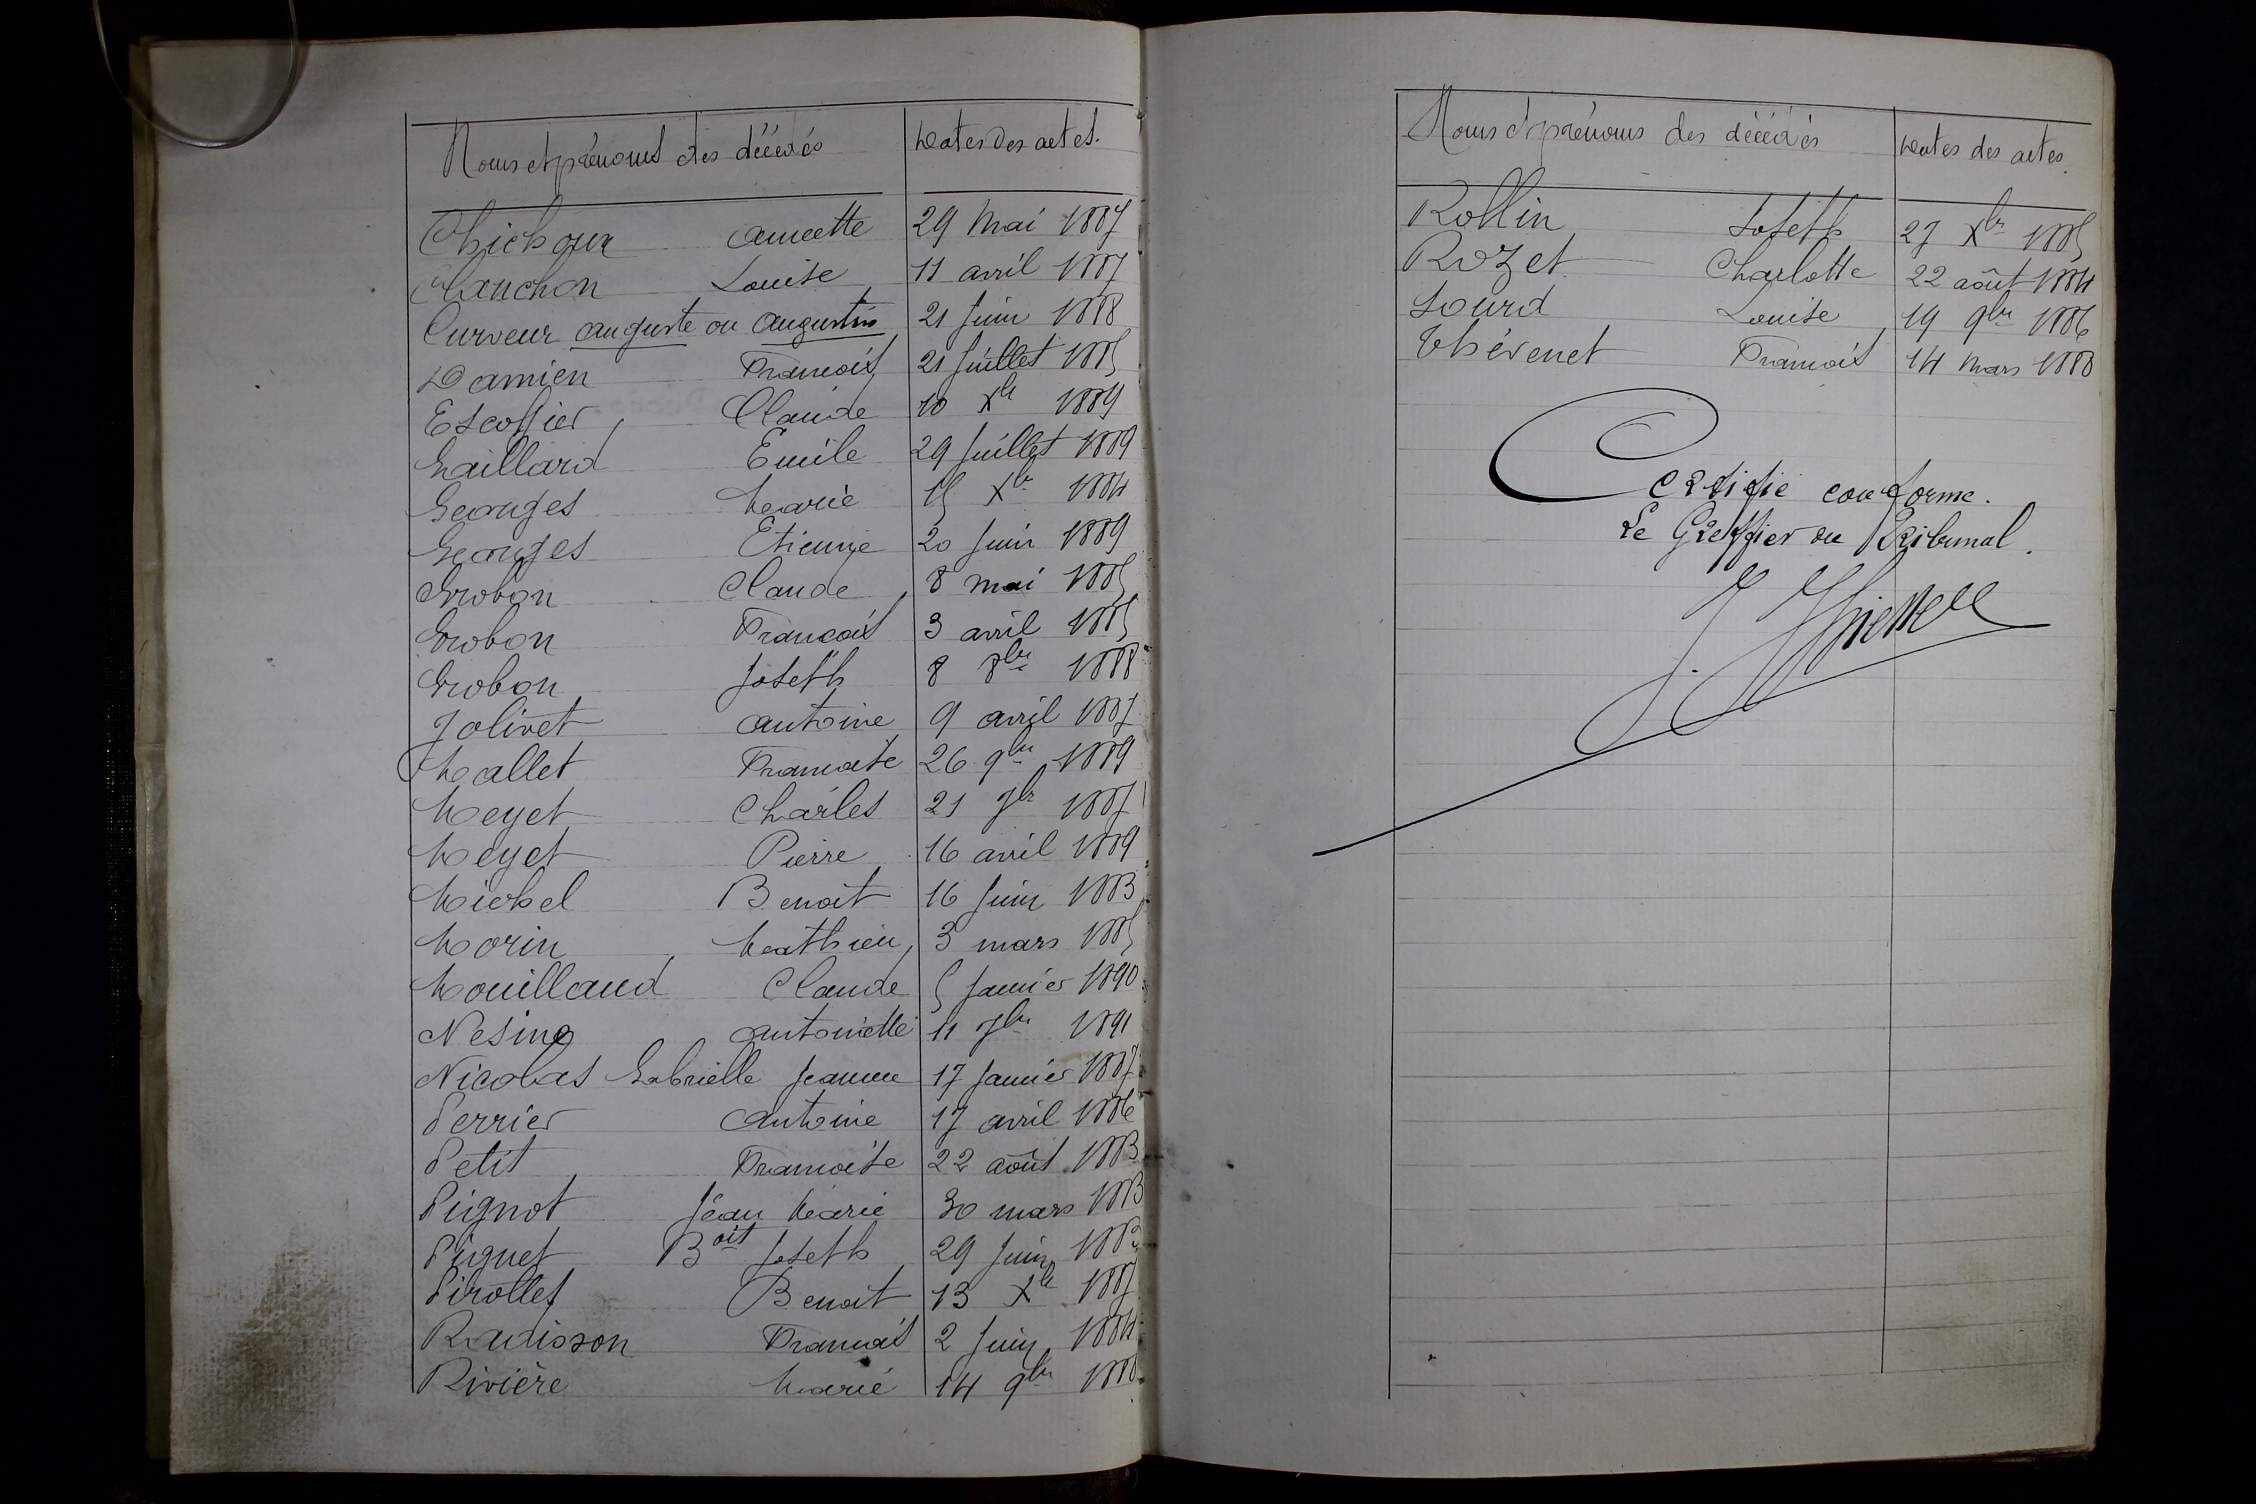 Noms et prénoms des décédés Dates des actes.
Chichoux Annette 29 Mai 1887
Clauchon Louise 11 avril 1887
Curveur auguste ou augustin 21 Juin 1888
Damien François 21 Juillet 1885
Escoffier Claude 10 Xbre 1889
Gaillard Emile 29 Juillet 1889
Georges Marie 15 Xbre 1884
Georges Etienne 20 Juin 1889
Grobon Claude 8 mai 1885
Grobon François 3 avril 1885
Grobon Joseph 8 8bre 1888
Jolivet antoine 9 avril 1887
Mallet Françoise 26 9bre 1889
Meyet Charles 21 7bre 1887
Meyet Pierre 16 avril 1889
Michel Benoit 16 Juin 1883
Morin Mathieu 3 mars 1885
Mouillaud Claude 5 Janvier 1890
Nesme antoinette 11 7bre 1891
Nicolas Gabrielle Jeanne 17 Janvier 1887
Perrier Antoine 17 avril 1886
Petit Françoise 22 août 1883
Pignot Jean Marie 30 mars 1883
Piguet Boit Joseph 29 Juin
Pirollet Benoit 13 Xbre 1887
Radisson François 2 Juin 1884
Rivière Marie 14 9bre
Noms et prénoms des décédés Dates des actes.
Rollin Joseph 27 Xbre 1885
Rozet Charlotte 22 août 1884
Sourd Louise 19 9bre 1886
Thévenet François 14 Mars 1888
Certifié conforme.
Le Greffier du Tribunal.